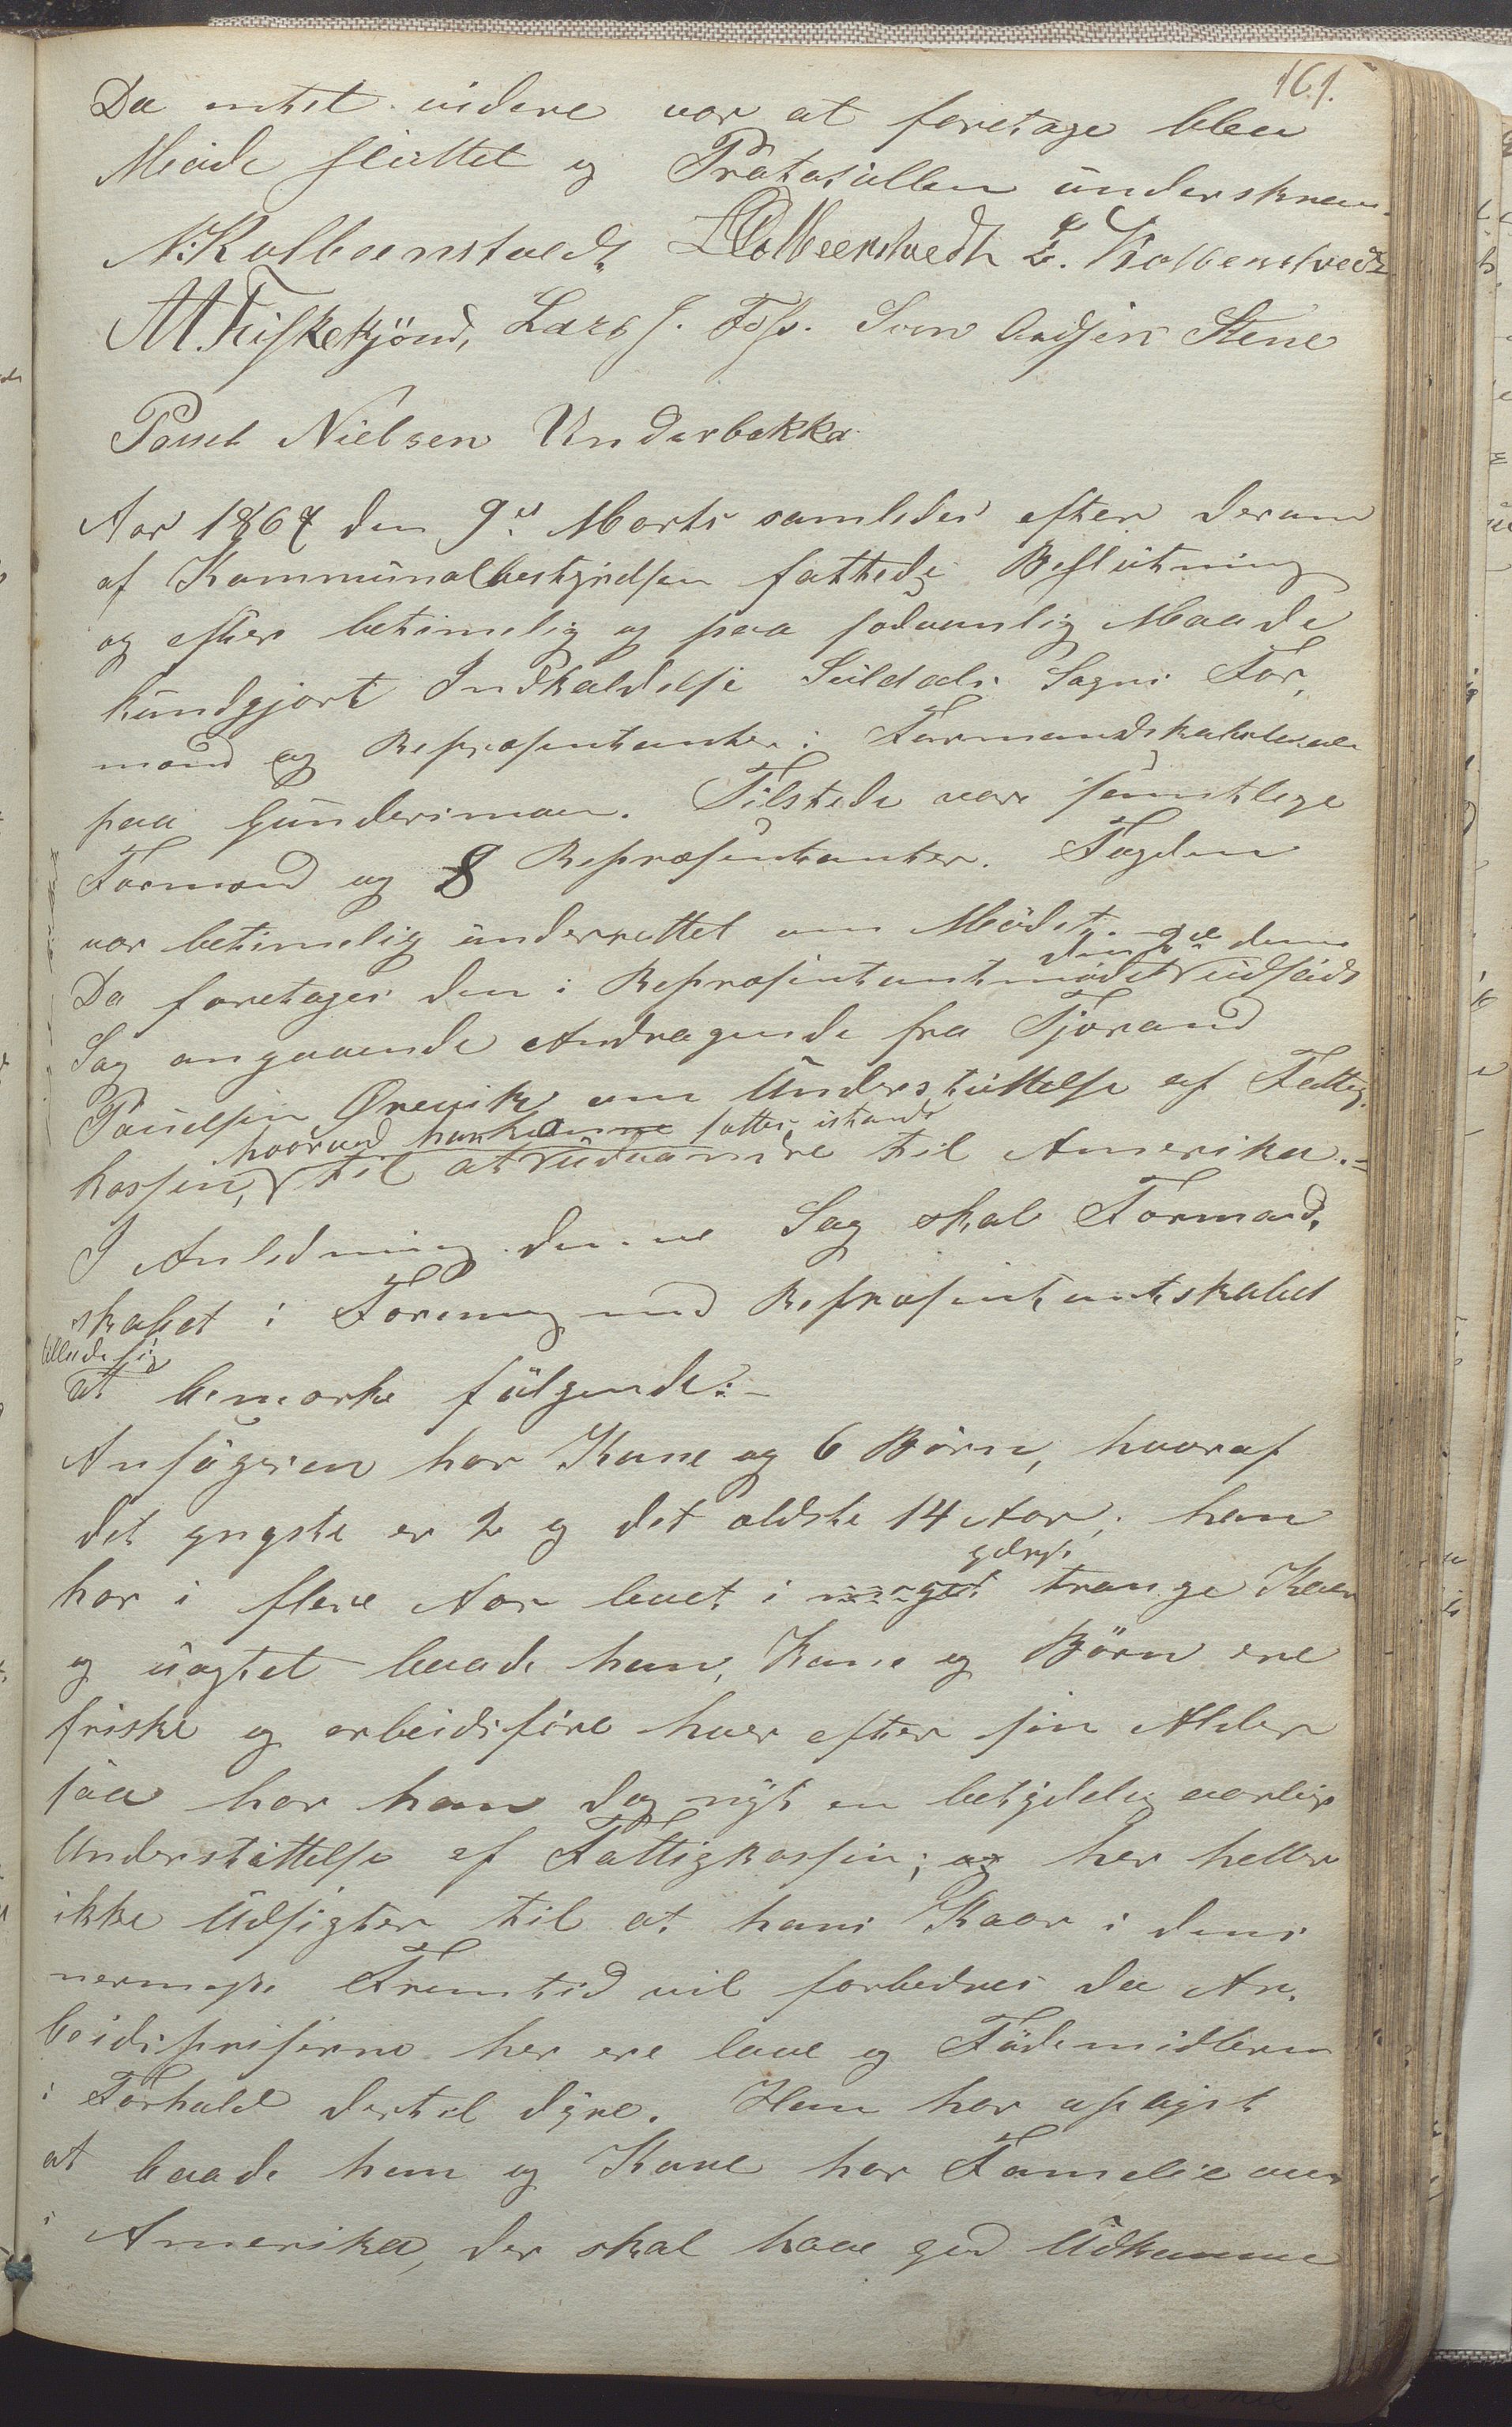 161.
Da intet videre var at foretage blev
Møde sluttet og Protokollen underskreven.
N: Kolbeenstvedt, L Kolbeenstvedt L. Kolbenstvedt
M. Fisketjönd, Lars J. Foss. Sven Andsen Stene
Poul Nielsen Underbakka
Aar 1867 den 9de Marts samledes efter derom
af Kommunalbestyrelsen fattede Beslutning
og efter betimelig og paa sædvanlig Maade
kundgjort Indkaldelse Suldals Sogns For,
mænd og Repræsentanter i Formandskabslocale
paa Gunderimoen. Tilstede vare samtlige
Formænd og 8 Repræsentanter. Fogden
var betimelig underrettet om Mødet.
den 2de dens
Da foretages den i Repræsentantmødet udsatte
Sag angaaende Andragende fra Tjerand
Poulsen Ørevik om Understøttelse af Fattig,
hvorved han kunne sættes istand
kassen, til at udvandre til Amerika.=
I Anledning denne Sag skal Formand,
skabet i Forening med Repræsentantskabet
tillade sig
at bemærke følgende:-
Ansøgeren har Kone og 6 Børn, hvoraf
det yngste er 2 og det ældste 14 Aar; han
har i flere Aar levet i meget trange Kaar
og uagtet baade han, Kone og Börn ere
friske og arbeidsføre hver efter sin Alder
saa har han dog nydt en betydelig aarlig
Understøttelse af Fattigkassen; og her heller
ikke Udsigter til at hans Kaar i dens
nermeste Fremtid vil forbedres da Ar,
beidspriserne her ere lave og Födemidlerne
i Forhold dertil dyre. Han har oplyst
at baade han og Kone har Familie over
i Amerika, der skal have god Udkomme